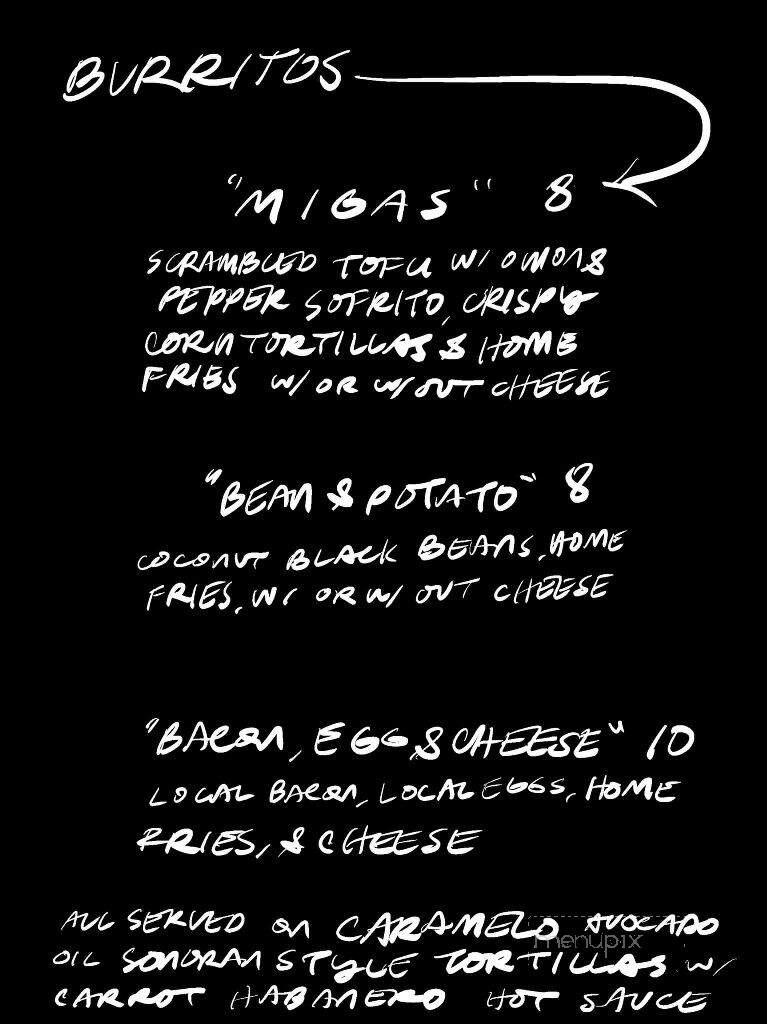 BURRITOS
"MIGAS" 8
SCRAMBLED TOFU W/ ONION &
PEPPER SOFRITO, CRISPY
CORN TORTILLAS & HOME
FRIES W/ OR W/OUT CHEESE
"BEAN & POTATO" 8
COCONUT BLACK BEANS, HOME
FRIES, W/ OR W/ OUT CHEESE
"BACON, EGG & CHEESE" 10
LOCAL BACON, LOCAL EGGS, HOME
FRIES, & CHEESE
ALL SERVED ON CARAMELO AVOCADO
menupix
OIL SONORAN STYLE TORTILLAS W/
CARROT HABANERO HOT SAUCE